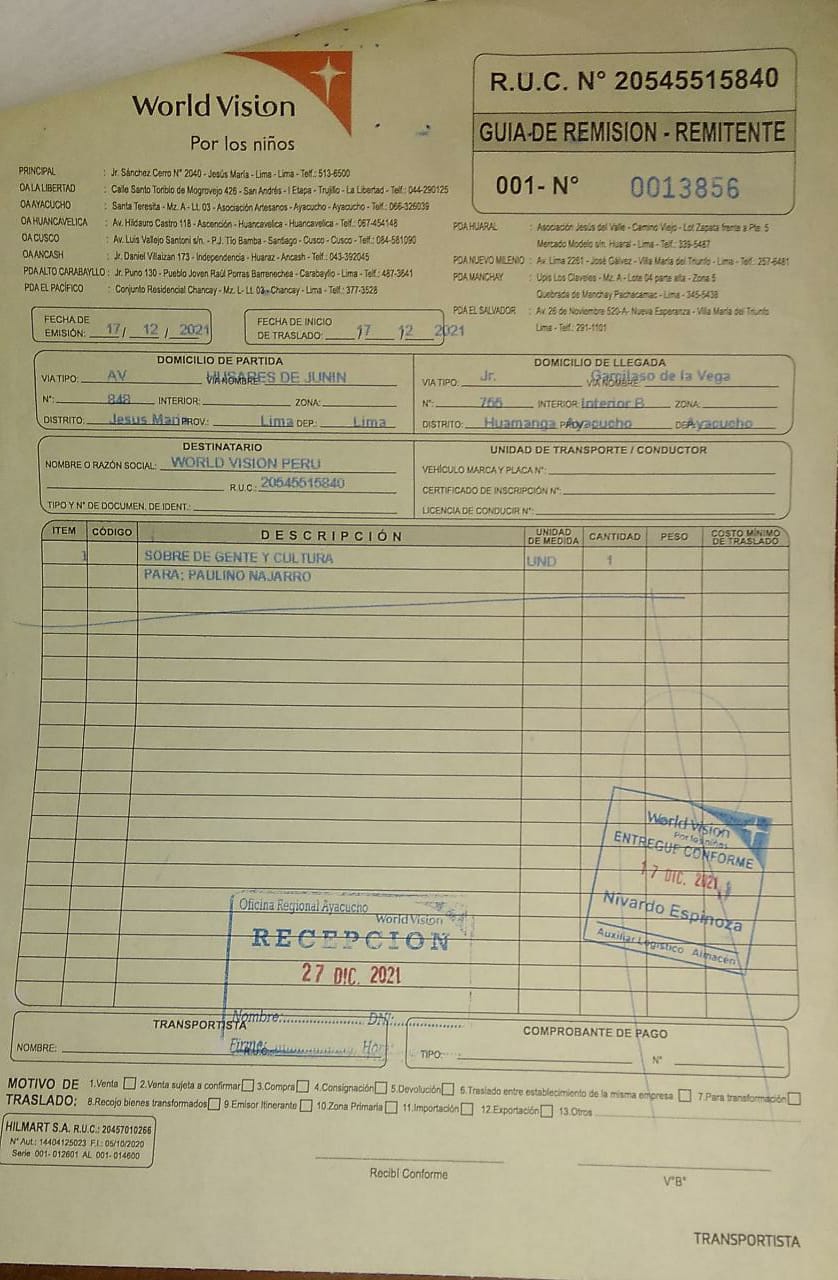 World Vision
Por los niños
R.U.C. N° 20545515840
GUIA-DE REMISION - REMITENTE
001- N° 0013856
PRINCIPAL : Jr. Sánchez Cerro N° 2040 - Jesús María - Lima - Lima - Telf.: 513-6500
OA LA LIBERTAD : Calle Santo Toribio de Mogrovejo 426 - San Andrés - I Etapa - Trujillo - La Libertad - Telf.: 044-290125
OA AYACUCHO : Santa Teresita - Mz. A - Lt. 03 - Asociación Artesanos - Ayacucho - Ayacucho - Telf.: 066-325039
OA HUANCAVELICA : Av. Hildauro Castro 118 - Ascención - Huancavelica - Huancavelica - Telf.: 067-454148
OA CUSCO : Av. Luis Vallejo Santoni s/n. - P.J. Tío Bamba - Santiago - Cusco - Cusco - Telf.: 084-581090
OA ANCASH : Jr. Daniel Villaizan 173 - Independencia - Huaraz - Ancash - Telf.: 043-392045
PDA ALTO CARABAYLLO : Jr. Puno 130 - Pueblo Joven Raúl Porras Barrenechea - Carabayllo - Lima - Telf.: 487-3641
PDA EL PACÍFICO : Conjunto Residencial Chancay - Mz. L- Lt. 03 - Chancay - Lima - Telf.: 377-3528
PDA HUARAL : Asociación Jesús del Valle - Camino Viejo - Lot Zapata frente a Pte. 5
Mercado Modelo s/n. Huaral - Lima - Telf.: 339-5487
PDA NUEVO MILENIO : Av. Lima 2261 - José Gálvez - Villa María del Triunfo - Lima - Telf.: 257-6481
PDA MANCHAY : Upis Los Claveles - Mz. A - Lote 04 parte alta - Zona 5
Quebrada de Manchay Pachacamac - Lima - 345-5438
PDA EL SALVADOR : Av. 26 de Noviembre 520-A- Nueva Esperanza - Villa María del Triunfo
Lima - Telf.: 291-1101
FECHA DE EMISIÓN: 17 / 12 / 2021
FECHA DE INICIO DE TRASLADO: 17 / 12 2021
DOMICILIO DE PARTIDA
VIA TIPO: AV VIA NOMBRE: HUSARES DE JUNIN
N°: 848 INTERIOR: ZONA:
DISTRITO: Jesus Maria PROV.: Lima DEP.: Lima
DOMICILIO DE LLEGADA
VIA TIPO: Jr. VIA NOMBRE: Garcilaso de la Vega
N°: 755 INTERIOR: Interior B ZONA:
DISTRITO: Huamanga Ayacucho DEP. Ayacucho
DESTINATARIO
NOMBRE O RAZÓN SOCIAL: WORLD VISION PERU
R.U.C.: 20545515840
TIPO Y N° DE DOCUMEN. DE IDENT.:
UNIDAD DE TRANSPORTE / CONDUCTOR
VEHÍCULO MARCA Y PLACA N°:
CERTIFICADO DE INSCRIPCIÓN N°:
LICENCIA DE CONDUCIR N°:
ITEM CÓDIGO DESCRIPCIÓN UNIDAD DE MEDIDA CANTIDAD PESO COSTO MÍNIMO DE TRASLADO
1 SOBRE DE GENTE Y CULTURA UND 1
PARA: PAULINO NAJARRO
World Vision
Por los niños
ENTREGUE CONFORME
17 DIC. 2021
Nivardo Espinoza
Auxiliar Logístico Almacén
Oficina Regional Ayacucho
World Vision
RECEPCION
27 DIC. 2021
Nombre: DNI:
Firma: Hor
TRANSPORTISTA
NOMBRE: R.U.C.
COMPROBANTE DE PAGO
TIPO: N°
MOTIVO DE TRASLADO: 1.Venta 2.Venta sujeta a confirmar 3.Compra 4.Consignación 5.Devolución 6.Traslado entre establecimiento de la misma empresa 7.Para transformación
8.Recojo bienes transformados 9.Emisor Itinerante 10.Zona Primaria 11.Importación 12.Exportación 13.Otros
HILMART S.A. R.U.C.: 20457010266
N° Aut.: 14404125023 F.I.: 05/10/2020
Serie 001- 012601 AL 001- 014600
Recibí Conforme
V°B°
TRANSPORTISTA